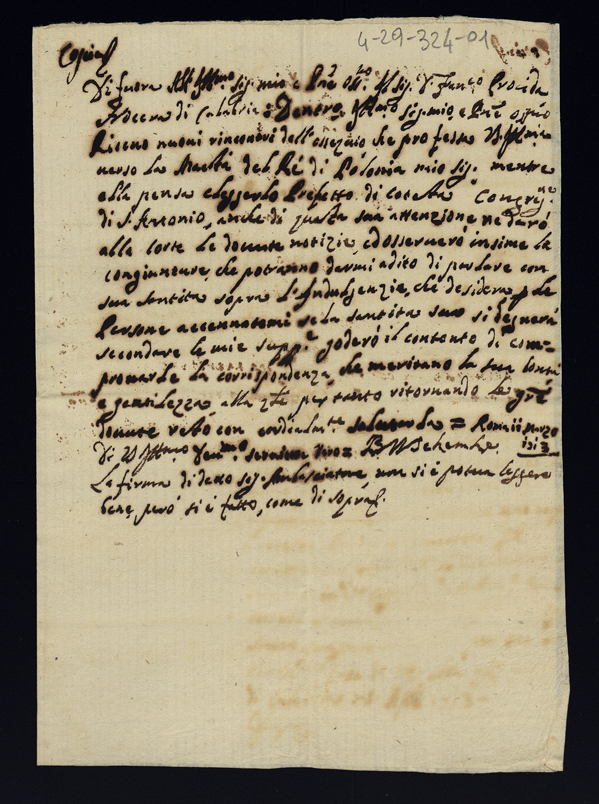 4-29-324-01
Copia
Di fuora All' Ill.mo Sig.r mio e Pne Oss.mo Il Sig. D. Fran.co Procida
di Calabria: Dentro: Ill.mo Sig.r mio, e Pne
Riceuo nuoui rincontri dell'ossequio, che professa V.S. Ill.ma
uerso la Maestà del Rè di Polonia mio Sig.re mentre
ella pensa eleggerlo Prefetto di cotesta Congreg.ne
di S. Antonio, anche di questa sua attenzione ne darò
alla Corte le douute notizie, ed osseruerò insieme le
congiunture, che potranno darmi adito di parlare con
sua Santità sopra l'Indulgenzie, che desidera p le
Persone accennatemi se la Santità sua si degnerà
secondare le mie supp.e goderò il contento di com-
prouarle la corrispondenza, che meritano la sua bontà
e gentilezza, alla q.le per tanto ritornando le gre
douute resto con cordialità salutarla = Roma 11 Marzo
Di V.S. Ill.ma
La firma di detto Sig. Ambasciatore non si è potuta leggere
bene, però si è fatto, come di sopra.